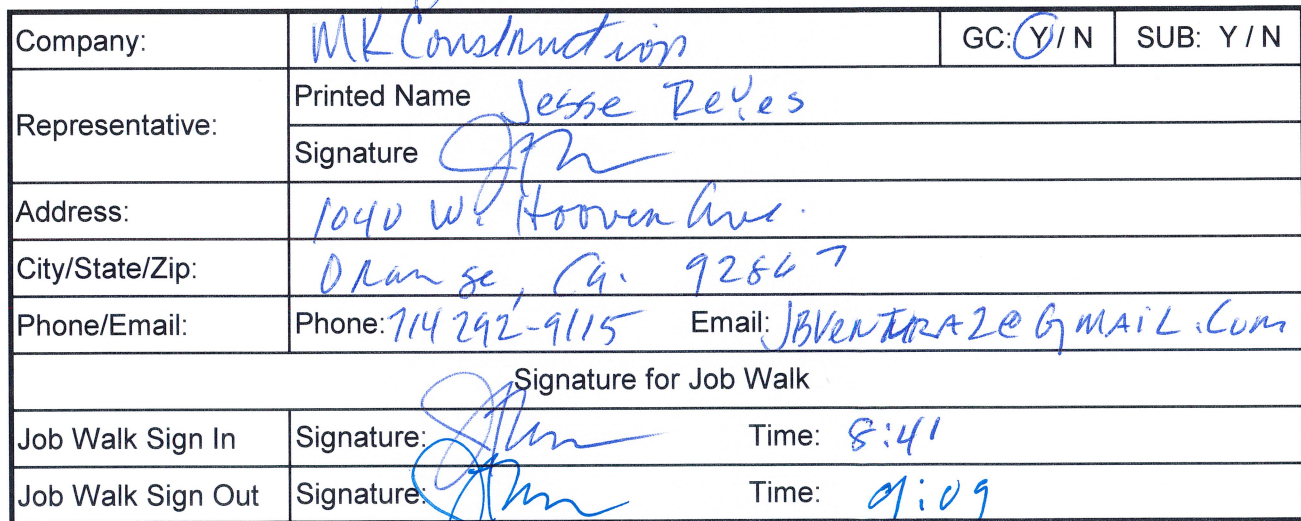 Company: MK Construction GC: Y / N SUB: Y / N
Representative: Printed Name Jesse Reyes
Signature
Address: 1040 W. Hoover Ave.
City/State/Zip: Orange, Ca. 92867
Phone/Email: Phone: 714 292-9115 Email: JBVENTURA2@GMAIL.COM
Signature for Job Walk
Job Walk Sign In Signature: Time: 8:41
Job Walk Sign Out Signature: Time: 9:09